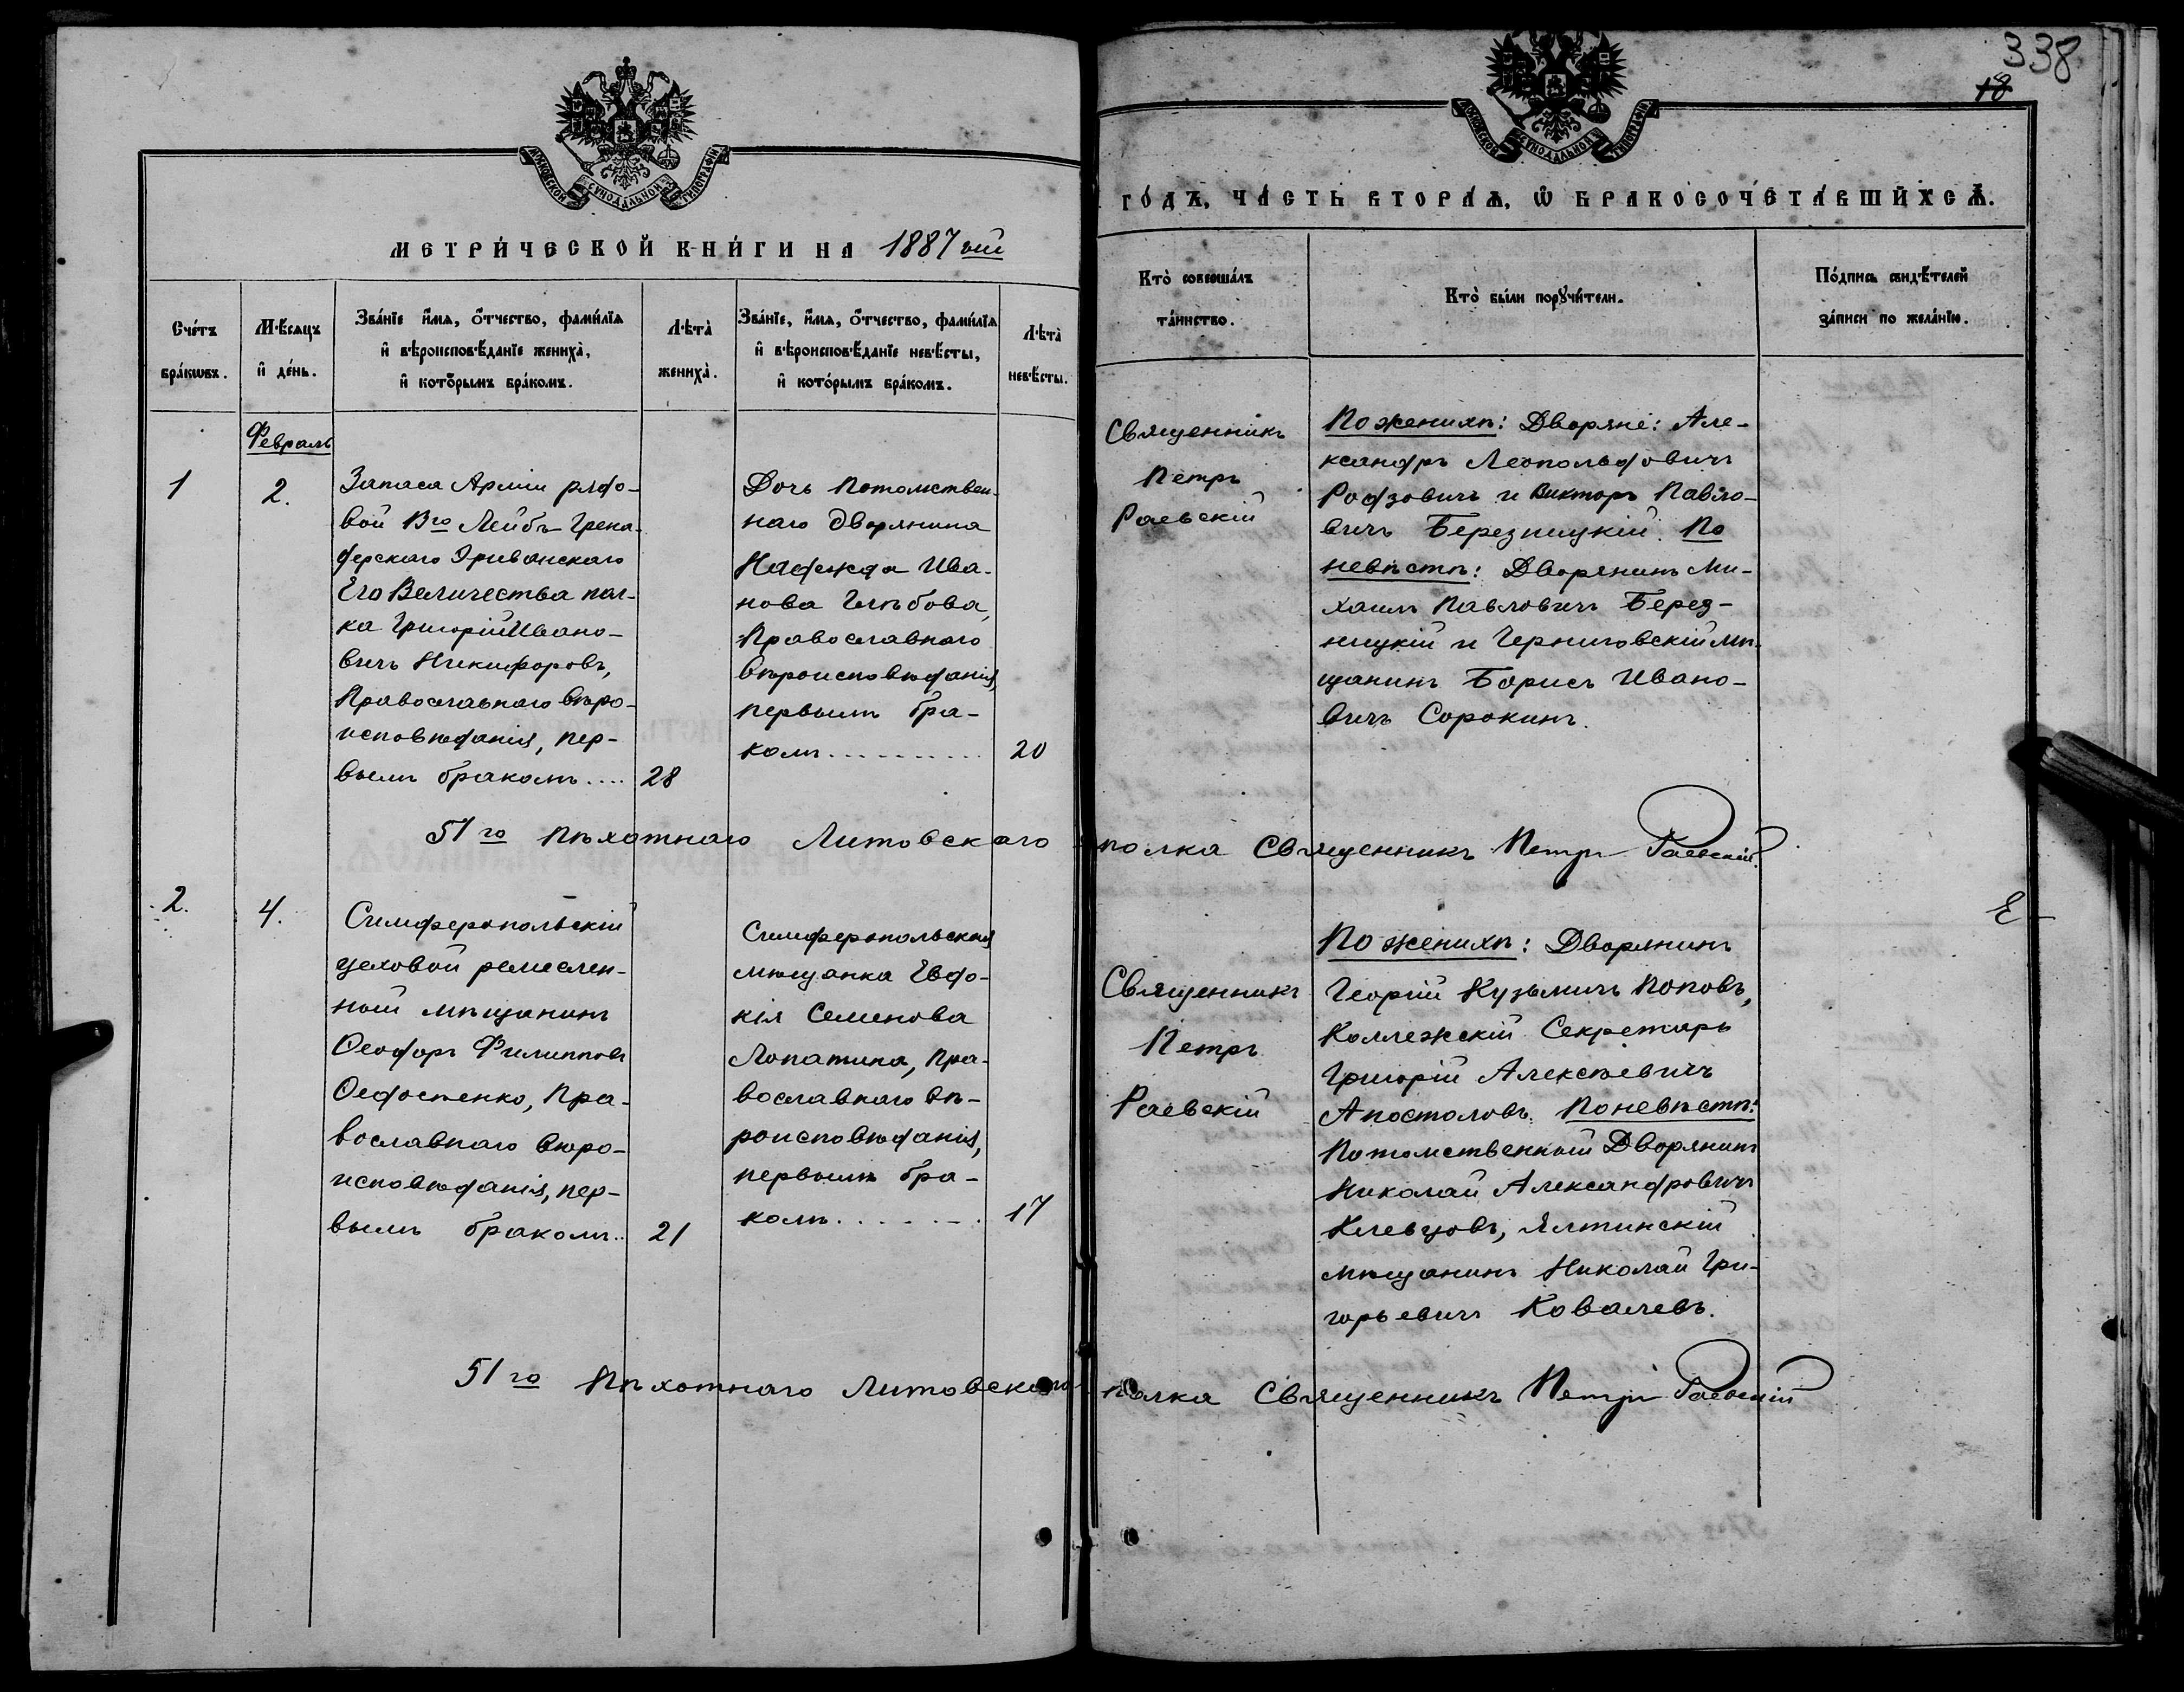 338
18
МОСКОВСКОЙ СУНОДАЛЬНОЙ ТИПОГРАФІИ
МОСКОВСКОЙ СУНОДАЛЬНОЙ ТИПОГРАФІИ
МЕТРИ́ЧЕСКОЙ КНИ́ГИ НА 1887 ый
ГО́ДЪ, ЧА́СТЬ ВТОРА́Ѧ, Ѽ БРАКОСОЧЕТА́ВШИХСѦ.
Сче́тъ
бра́кѡвъ.
Мѣ́сяцъ
и҆ де́нь.
Зва́нїе и҆́мѧ, ѻ҆́тчество, фами́лїѧ
и҆ вѣроисповѣ́данїе жениха̀,
и҆ кото́рымъ бра́комъ.
Лѣта̀
жениха̀.
Зва́нїе, и҆́мѧ, ѻ҆́тчество, фами́лїѧ
и҆ вѣроисповѣ́данїе невѣ́сты,
и҆ кото́рымъ бра́комъ.
Лѣта̀
невѣ́сты.
Кто̀ соверша́лъ
та́инство.
Кто̀ бы́ли порꙋчи́тели.
По́дпись свидѣ́телей
за́писи по жела́нїю.
Февраль
1
2.
Запаса Арміи рядо-
вой 13го Лейбъ-Грена-
дерскаго Эриванскаго
Его Величества пол-
ка Григорій Ивано-
вичъ Никифоровъ,
Православнаго вѣро-
исповѣданія, пер-
вымъ бракомъ....
28
Дочь Потомствен-
наго дворянина
Надежда Ива-
нова Глѣбова,
Православнаго
вѣроисповѣданія,
первымъ бра-
комъ..........
20
Священникъ
Петръ
Раевскій
По женихѣ: Дворяне: Але-
ксандръ Леопольдовичъ
Родзовичъ и Викторъ Павло-
вичъ Березницкій. По
невѣстѣ: Дворянинъ Ми-
хаилъ Павловичъ Берез-
ницкій и Черниговскій мѣ-
щанинъ Борисъ Ивано-
вичъ Сорокинъ.
51го Пѣхотнаго Литовскаго полка Священникъ Петръ Раевскій.
2.
4.
Симферопольскій
цеховой ремеслен-
ной мѣщанинъ
Ѳеодоръ Филипповъ
Ѳедосѣенко, Пра-
вославнаго вѣро-
исповѣданія, пер-
вымъ бракомъ..
21
Симферопольская
мѣщанка Евдо-
кія Семенова
Лопатина, Пра-
вославнаго вѣ-
роисповѣданія,
первымъ бра-
комъ........
17
Священникъ
Петръ
Раевскій
По женихѣ: Дворянинъ
Георгій Кузьмичъ Поповъ,
Коллежскій Секретарь
Григорій Алексѣевичъ
Апостоловъ. По невѣстѣ:
Потомственный Дворянинъ
Николай Александровичъ
Клевцовъ, Ялтинскій
мѣщанинъ Николай Гри-
горьевичъ Ковалевъ.
51го Пѣхотнаго Литовскаго полка Священникъ Петръ Раевскій